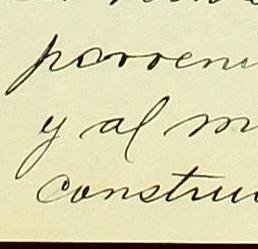 porveni
y al m
constru